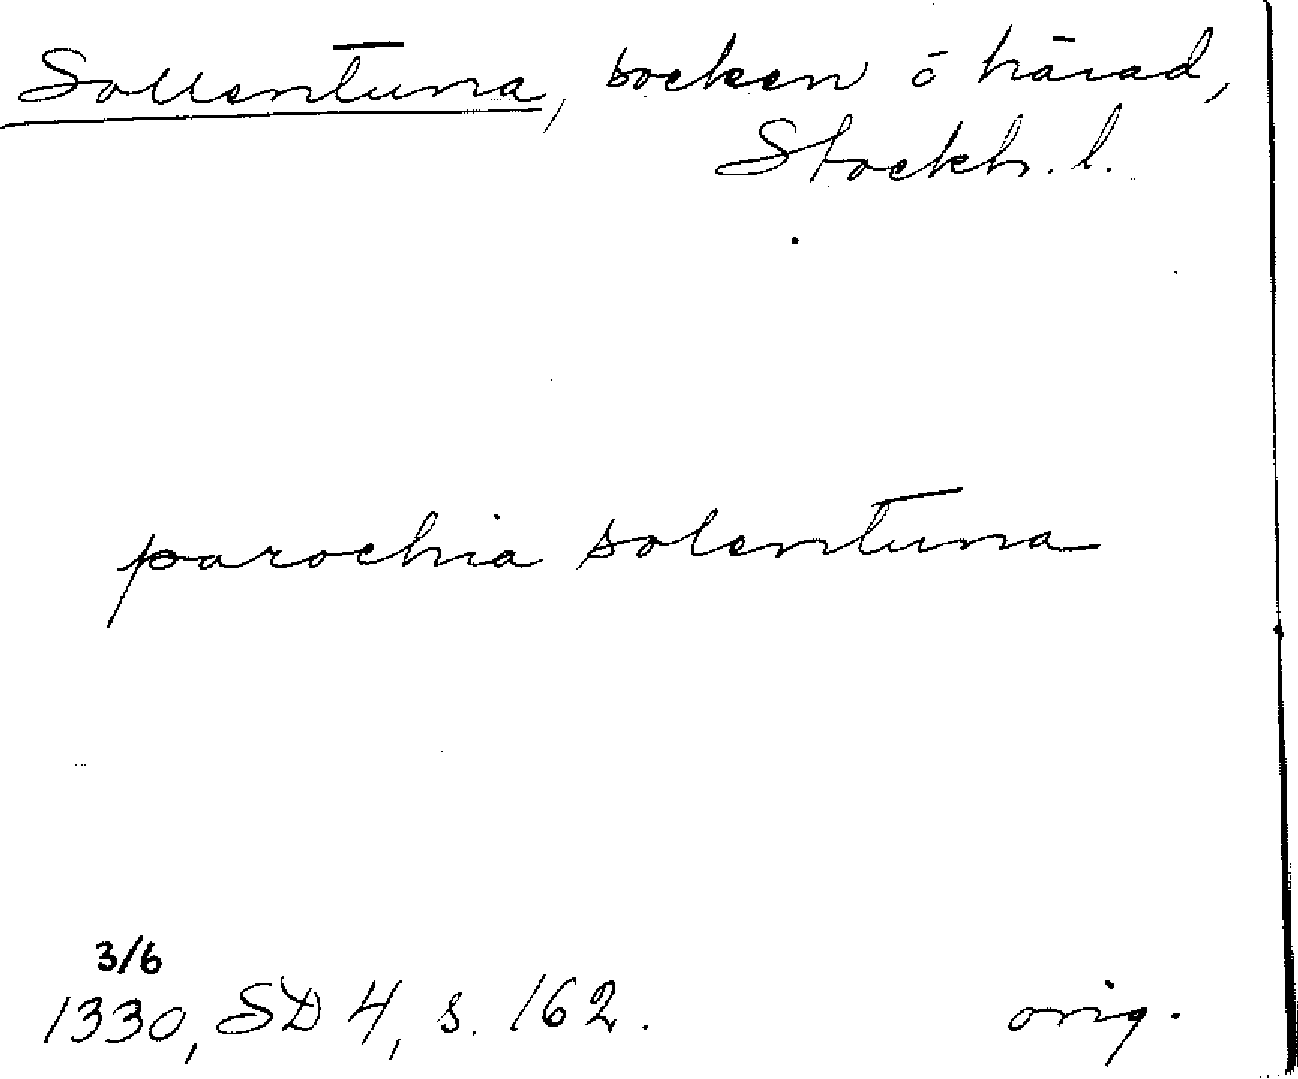 Sollentuna, socken ō härad,
Stockh. l.
parochia solentuna
3/6
1330, SD 4, s. 162. orig.